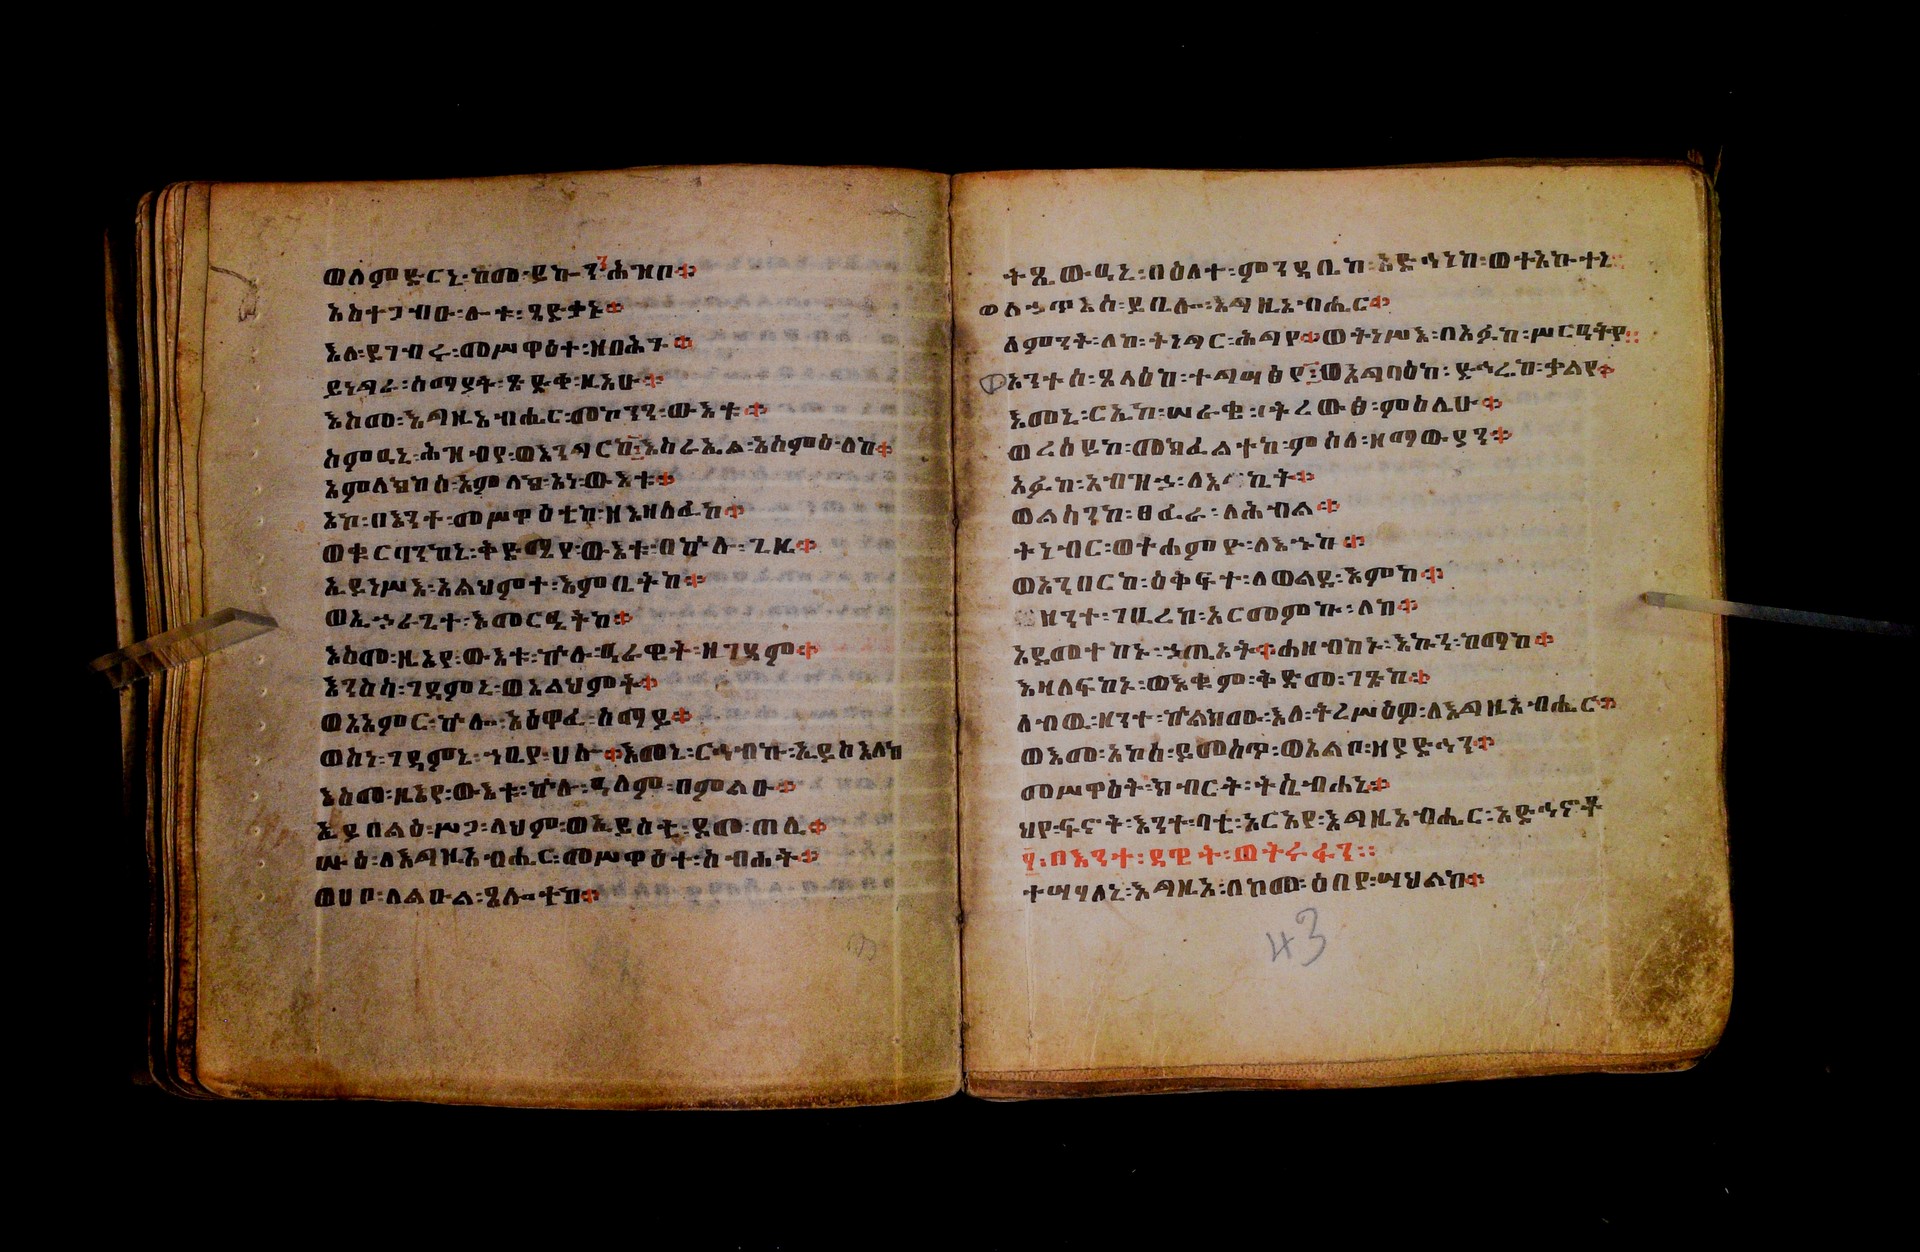 ወለምድርኒ፡ከመ፡ይኰንን፡ሕዝበ።
አስተጋብዑ፡ሎቱ፡ጻድቃኑ።
እለ፡ይገብሩ፡መሥዋዕተ፡ዘበሕጉ።
ይነግራ፡ሰማያት፡ጽድቀ፡ዚአሁ።
እስመ፡እግዚአብሔር፡መኰንን፡ውእቱ።
ስምዐኒ፡ሕዝብየ፡ወእንግርከ፡እስራኤል፡አስምዕ፡ለከ።
አምላክከሰ፡አምላክ፡አነ፡ውእቱ።
አኮ፡በእንተ፡መሥዋዕቲከ፡ዘእዛለፈከ።
ወቍርባንከኒ፡ቅድሜየ፡ውእቱ፡በኵሉ፡ጊዜ።
ኢይነሥእ፡አልህምተ፡እምቤትከ።
ወኢሐራጊተ፡እመርዔትከ።
እስመ፡ዚአየ፡ውእቱ፡ኵሉ፡አራዊት፡ዘገዳም።
እንስሳ፡ገዳምኒ፡ወአልህምት።
ወአአምር፡ኵሎ፡አዕዋፈ፡ሰማይ።
ወስነ፡ገዳምኒ፡ኀቤየ፡ሀሎ።እመኒ፡ርኅብኩ፡ኢይስእለከ
እስመ፡ዚአየ፡ውእቱ፡ኵሉ፡ዓለም፡በምልዑ።
ኢይበልዕ፡ሥጋ፡ላህም፡ወኢይሰቲ፡ደመ፡ጠሊ።
ሡዕ፡ለእግዚአብሔር፡መሥዋዕተ፡ስብሐት።
ወሀቦ፡ለልዑል፡ጸሎተከ።
ትጼውዐኒ፡በዕለተ፡ምንዳቤከ፡አድኅነከ፡ወተአኵተኒ፡
ወለኃጥእሰ፡ይቤሎ፡እግዚአብሔር።
ለምንት፡ለከ፡ትነግር፡ሕግየ።ወትነሥእ፡በአፉከ፡ሥርዓትየ፡
አንተሰ፡ጸላዕከ፡ተግሣፅየ፡ወአግባእከ፡ድኅሬከ፡ቃልየ።
እመኒ፡ርኢከ፡ሠራቂ፡ትረውፅ፡ምስሌሁ።
ወረሰይከ፡መክፈልተከ፡ምስለ፡ዘማውያን።
አፉከ፡አብዝኃ፡ለእኪት።
ወልሳንከ፡ፀፈራ፡ለሕብል።
ትነብር፡ወተሐምዮ፡ለእኁከ።
ወአንበርከ፡ዕቅፍተ፡ለወልደ፡እምከ።
ዘንተ፡ገቢረከ፡አርመምኩ፡ለከ።
አደመተከኑ፡ኃጢአት።ሐዘብከኑ፡እኩን፡ከማከ።
እዛለፍከኑ፡ወእቁም፡ቅድመ፡ገጽከ።
ለብዉ፡ዘንተ፡ኵልክሙ፡እለ፡ትረሥዕዎ፡ለእግዚአብሔር።
ወእመ፡አኮሰ፡ይመስጥ፡ወአልቦ፡ዘያድኅን።
መሥዋዕት፡ክብርት፡ትሴብሐኒ።
ህየ፡ፍኖት፡እንተ፡ባቲ፡አርአየ፡እግዚአብሔር፡አድኅኖቶ
፶፡በእንተ፡ዳዊት፡ወትሩፋን፡፡
ተሣሃለኒ፡እግዚኦ፡በከመ፡ዕበየ፡ሣህልከ።
43